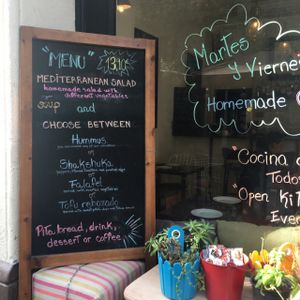 "MENU" 13,90
MEDITERRANEAN SALAD
homemade salad with
different vegetables
soup and
CHOOSE BETWEEN
Hummus
or
Shakshuka
or
Falafel
or
Tofu rebozado
Pita bread, drink,
dessert or coffee
Martes
y Viernes
Homemade
Cocina
Todos
"Open Kit